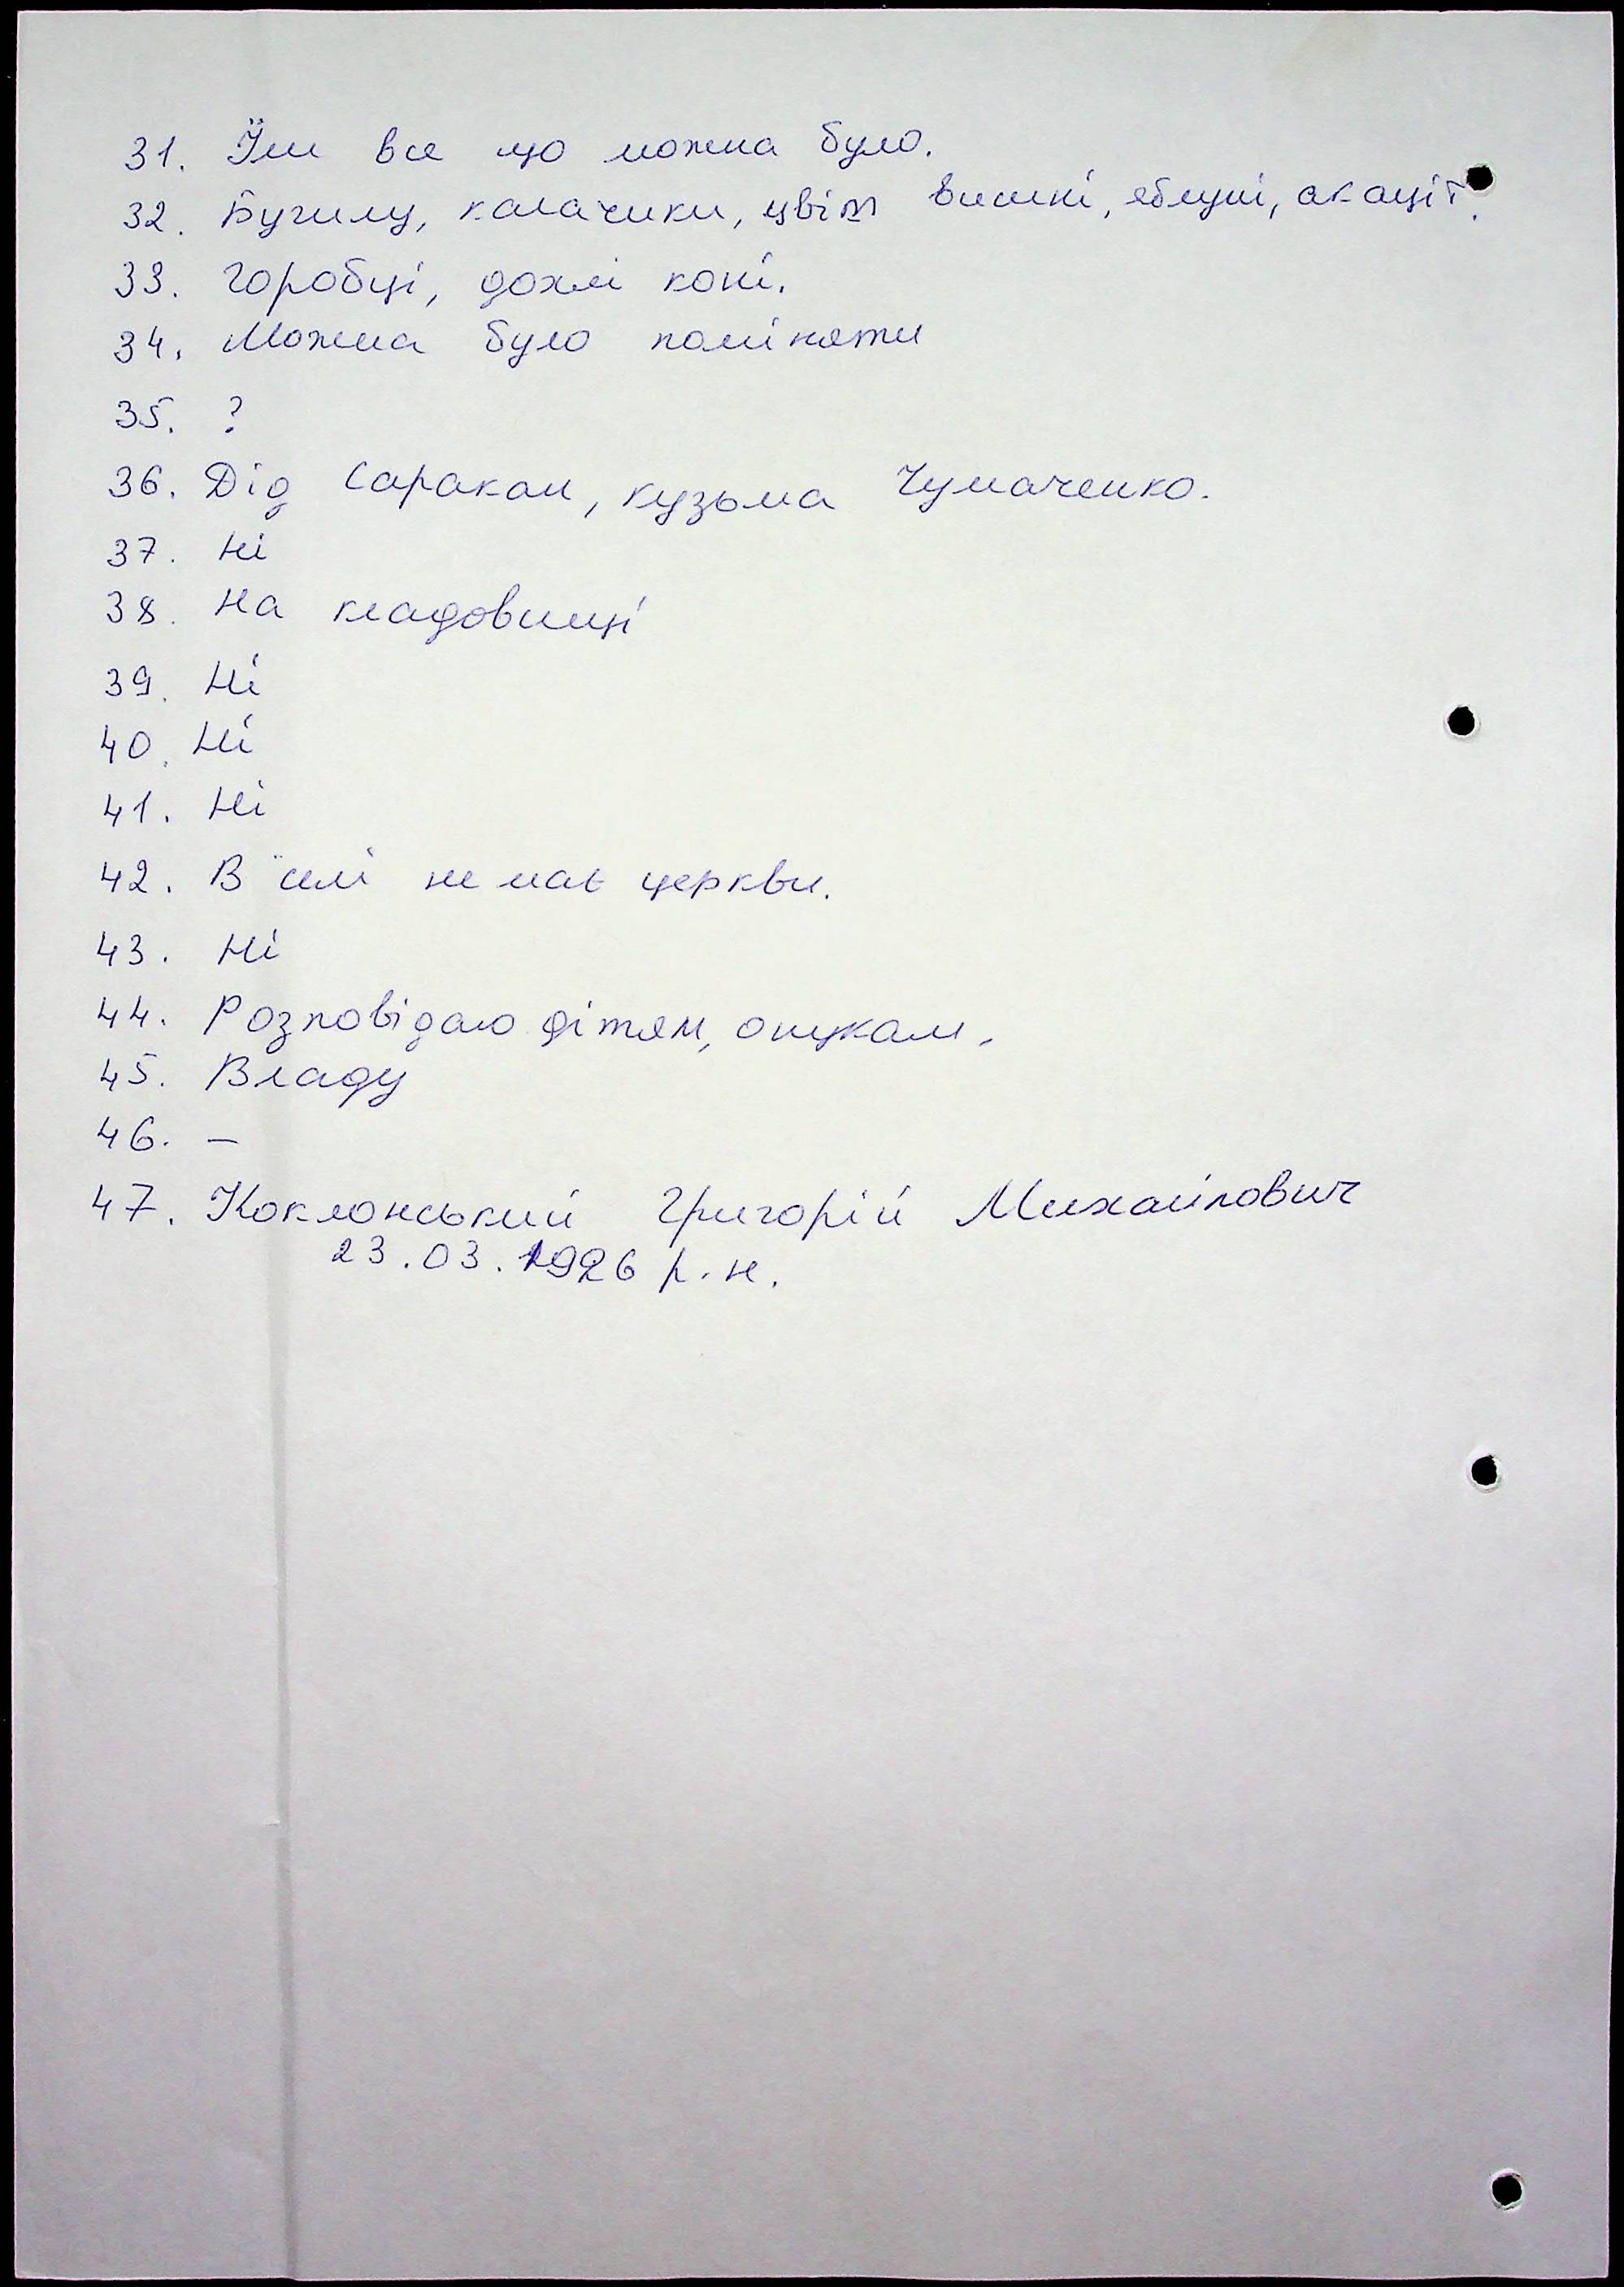 31. Їли все що можна було.
32. Бугилу, калачики, цвіт вишні, яблуні, акації.
33. Горобці, дохлі коні.
34. Можна було поміняти
35. ?
36. Дід Саракан, Кузьма Чумаченко.
37. Ні
38. На кладовищі
39. Ні
40. Ні
41. Ні
42. В селі немає церкви.
43. Ні
44. Розповідаю дітям, онукам.
45. Владу
46. –
47. Коклонський Григорій Михайлович
23.03.1926 р.н.